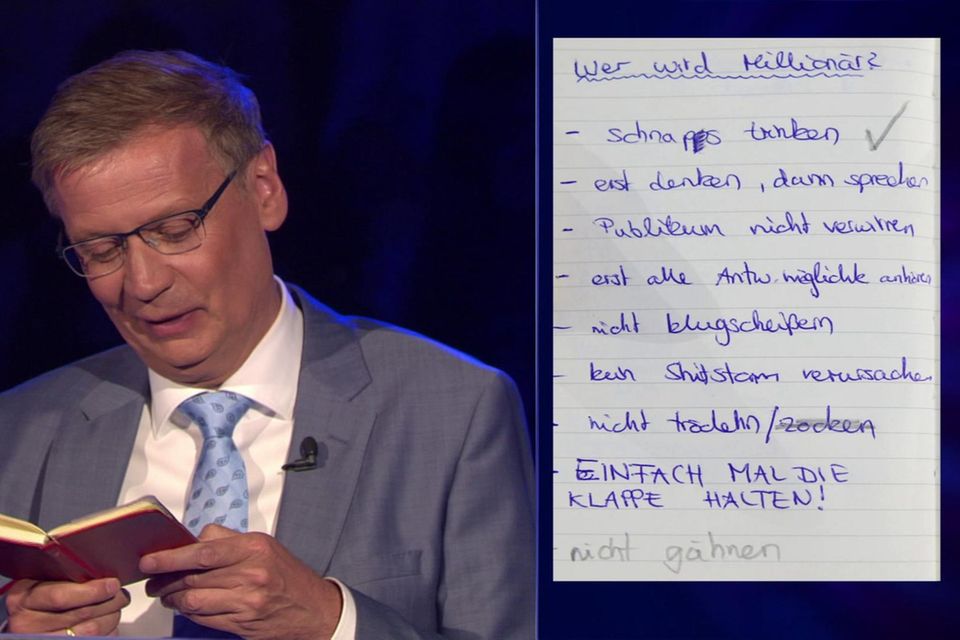 Wer wird Millionär?
- schnaps trinken ✓
- erst denken, dann sprechen
- Publikum nicht verwirren
- erst alle Antw.möglichk anhören
- nicht klugscheißern
- kein Shitstorm verursachen
- nicht trödeln/zocken
- EINFACH MAL DIE
KLAPPE HALTEN!
- nicht gähnen